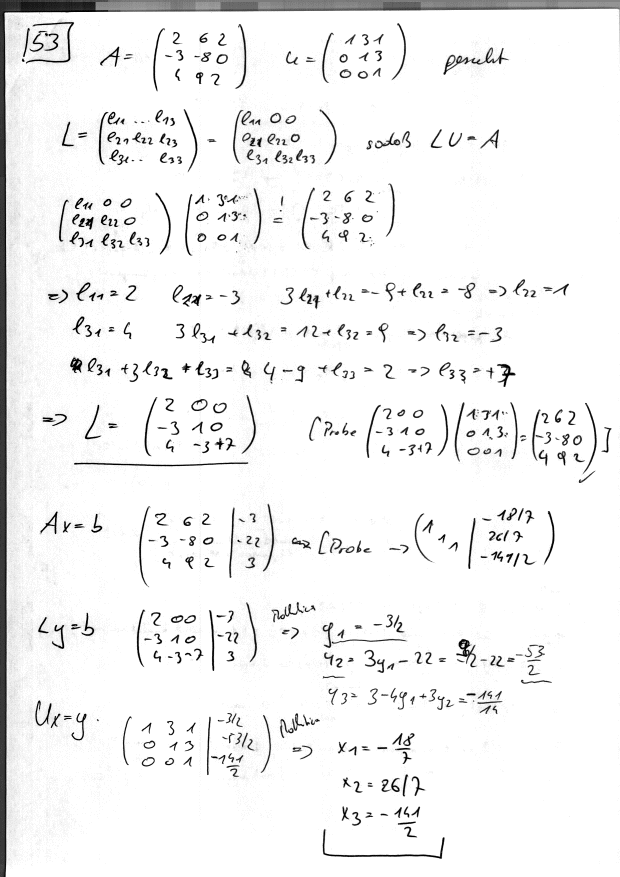 53 A = ( 2 6 2 ; -3 -8 0 ; 4 9 2 ) U = ( 1 3 1 ; 0 1 3 ; 0 0 1 ) gesucht
L = ( l11 ... l13 ; l21 l22 l23 ; l31 .. l33 ) = ( l11 0 0 ; l21 l22 0 ; l31 l32 l33 ) sodaß LU = A
( l11 0 0 ; l21 l22 0 ; l31 l32 l33 ) ( 1 3 1 ; 0 1 3 ; 0 0 1 ) =! ( 2 6 2 ; -3 -8 0 ; 4 9 2 )
=> l11 = 2 l21 = -3 3l21 + l22 = -9 + l22 = -8 => l22 = 1
l31 = 4 3l31 + l32 = 12 + l32 = 9 => l32 = -3
l31 + 3l32 + l33 = 4 - 9 + l33 = 2 => l33 = +7
=> L = ( 2 0 0 ; -3 1 0 ; 4 -3 +7 ) [Probe ( 2 0 0 ; -3 1 0 ; 4 -3 +7 ) ( 1 3 1 ; 0 1 3 ; 0 0 1 ) = ( 2 6 2 ; -3 -8 0 ; 4 9 2 ) ] ✓
Ax = b ( 2 6 2 | -3 ; -3 -8 0 | -22 ; 4 9 2 | 3 ) [Probe -> ( 1 1 1 | -18/7 ; 26/7 ; -141/2 )
Ly = b ( 2 0 0 | -3 ; -3 1 0 | -22 ; 4 -3 -7 | 3 ) => y1 = -3/2
y2 = 3y1 - 22 = -9/2 - 22 = -53/2
y3 = 3 - 4y1 + 3y2 = -141/14
Ux = y. ( 1 3 1 | -3/2 ; 0 1 3 | -53/2 ; 0 0 1 | -141/2 ) => x1 = -18/7
x2 = 26/7
x3 = -141/2